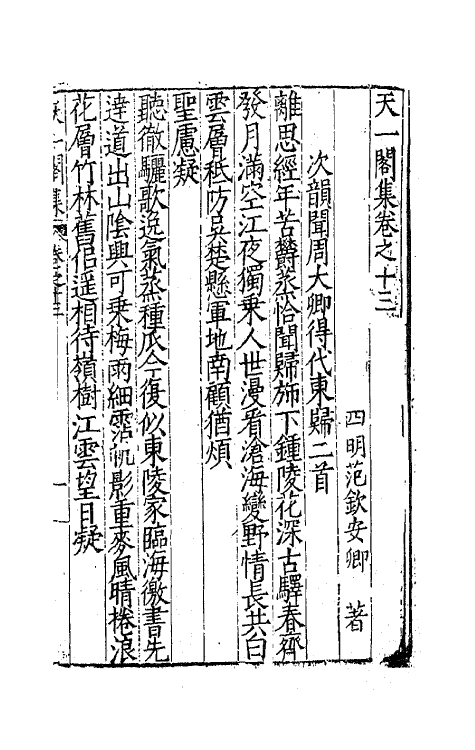 天一閣集卷之十三
四明范欽安卿　著
次韻聞周大卿得代東歸二首
離思經年苦欝蒸恰聞歸斾下鍾陵花深古驛春齊
發月滿空江夜獨乗人世漫看滄海變野情長共白
雲層秪防吳楚懸軍地南顧猶煩
聖慮凝
聽徹驪歌逸氣蒸種瓜今復似東陵家臨海徼書先
達道出山陰興可乗梅雨細霑帆影重麥風晴捲浪
花層竹林舊侶遥相待嶺樹江雲望目凝
天一閣集 卷之十三 一